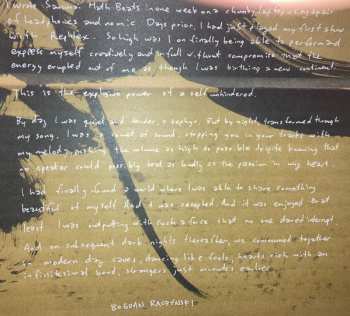 I wrote Samurai Math Beats in one week on a chunky laptop using a pair
of headphones and no mic. Days prior, I had just played my first show
with Rephlex. So high was I on finally being able to perform and
express myself creatively and in full without compromise that the
energy erupted out of me as though I was birthing a new continent.
This is the explosive power of a self unhindered.
By day I was quiet and tender, a zephyr. But by night transformed through
my song. I was a comet of sound, stopping you in your tracks with
my melody, pushing the volume as high as possible despite knowing that
no speaker could possibly beat as loudly as the passion in my heart.
I had finally found a world where I was able to share something
beautiful of myself. And it was accepted. And it was enjoyed. And
least I was outputting with such a force that no one dared interrupt.
And on subsequent dark nights thereafter, we communed together
in modern day caves, dancing like fools, hearts rich with an
infinitesimal bond, strangers just minutes earlier.
BOGDAN RACZYNSKI